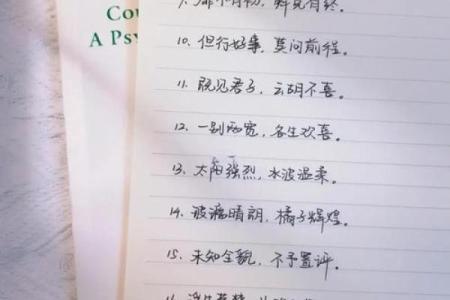 Cou
A Psy
不有初，有终。
10. 但行好事，莫问前程。
11. 既见君子，云胡不喜。
12. 一别两宽，各生欢喜。
13. 太阳强烈，水波温柔。
14. 玻璃晴朗，橘子辉煌。
15. 未知全貌，不予置评。